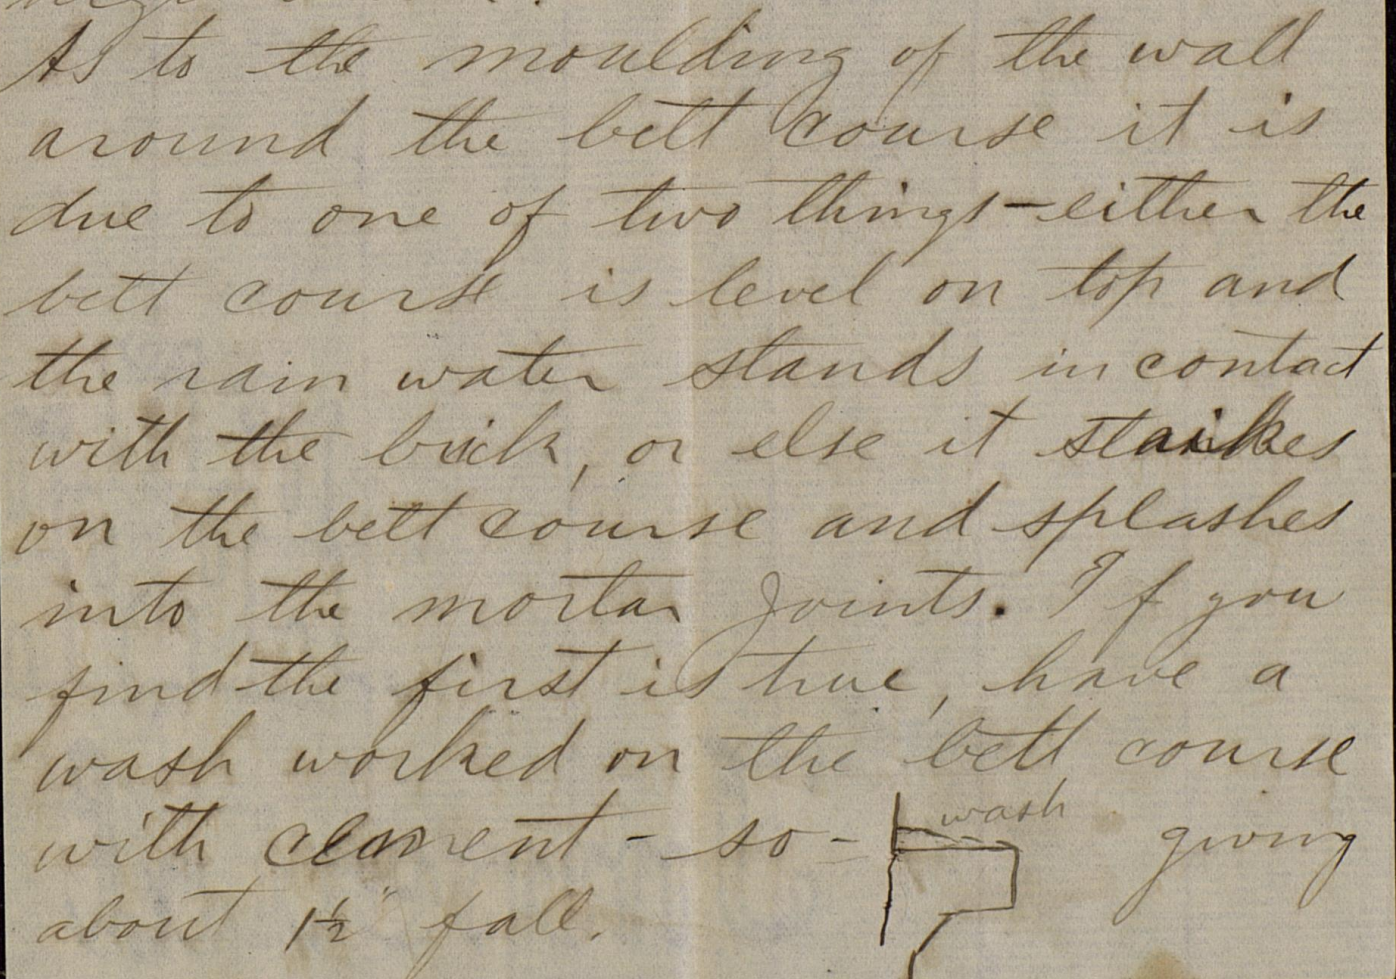 As to the moulding of the wall
around the belt course it is
due to one of two things - either the
belt course is level on top and
the rain water stands in contact
with the brick, or else it strikes
on the belt course and splashes
into the mortar joints. If you
find the first is true, have a
wash worked on the belt course
with cement - so - wash giving
about 1½" fall.